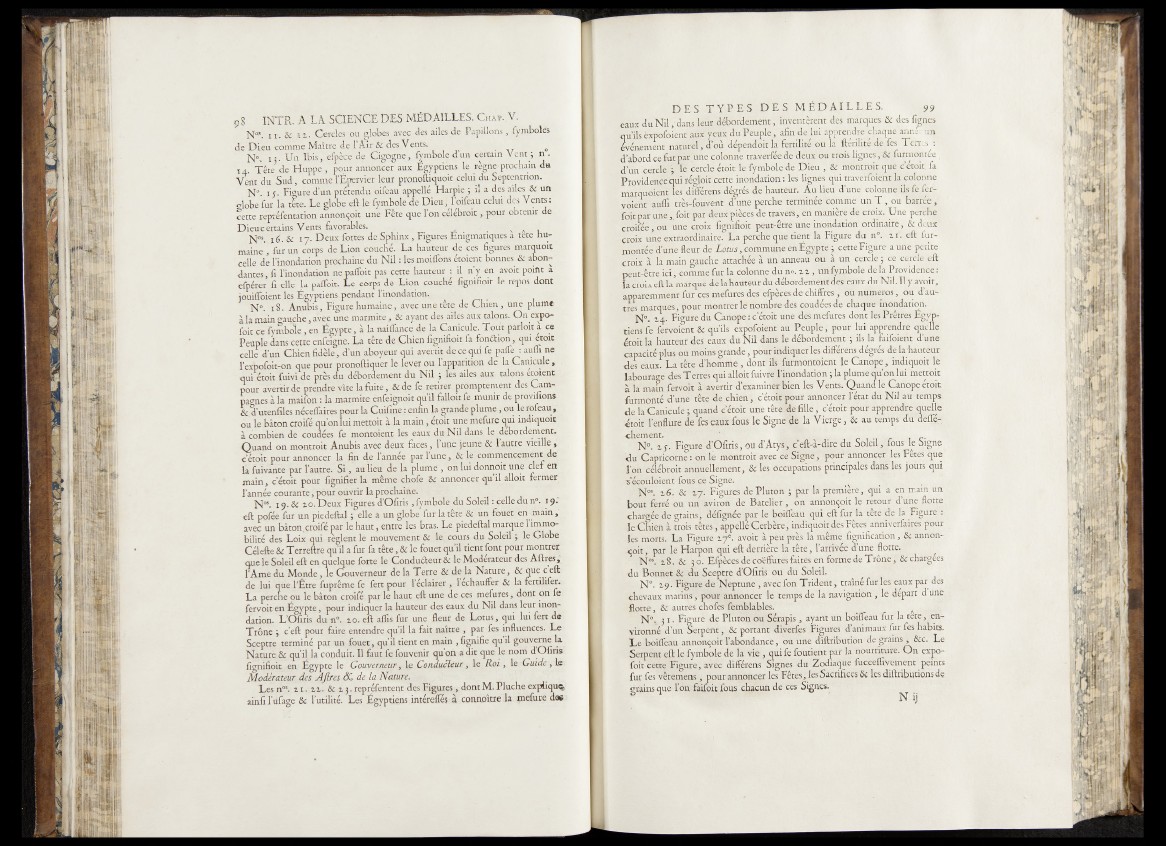 98 INTR. A LA SCIENCE DES MÉDAILLES. CHAP. V.
Nos. 11. & 12. Cercles ou globes avec des ailes de Papillons, ſymboles
de Dieu comme Maître de l'Air & des Vents.
No. 13. Un Ibis, eſpèce de Cigogne, ſymbole d'un certain Vent ; no.
14. Tête de Huppe, pour annoncer aux Égyptiens le règne prochain du
Vent du Sud, comme l'Epervier leur pronoſtiquoit celui du Septentrion.
No. 15. Figure d'un prétendu oiſeau appellé Harpie ; il a des ailes & un
globe ſur la tête. Le globe eſt le ſymbole de Dieu, l'oiſeau celui des Vents :
cette repréſentation annonçoit une Fête que l'on célébroit, pour obtenir de
Dieu certains Vents favorables.
Nos. 16. & 17. Deux ſortes de Sphinx, Figures Énigmatiques à tête hu-
maine, ſur un corps de Lion couché. La hauteur de ces figures marquoit
celle de l'inondation prochaine du Nil : les moiſſons étoient bonnes & abon-
dantes, ſi l'inondation ne paſſoit pas cette hauteur : il n'y en avoit point à
eſpérer ſi elle la paſſoit. Le corps de Lion couché ſignifioit le repos dont
jouiſſoient les Egyptiens pendant l'inondation.
No. 18. Anubis, Figure humaine, avec une tête de Chien, une plume
à la main gauche, avec une marmite, & ayant des ailes aux talons. On expo-
ſoit ce ſymbole, en Egypte, à la naiſſance de la Canicule. Tout parloit à ce
Peuple dans cette enſeigne. La tête de Chien ſignifioit ſa fonction, qui étoit
celle d'un Chien fidèle, d'un aboyeur qui avertit de ce qui ſe paſſe : auſſi ne
l'expoſoit-on que pour pronoſtiquer le lever ou l'apparition de la Canicule,
qui étoit ſuivi de près du débordement du Nil ; les ailes aux talons étoient
pour avertir de prendre vîte la fuite, & de ſe retirer promptement des Cam-
pagnes à la maiſon : la marmite enſeignoit qu'il falloit ſe munir de proviſions
& d'utenſiles néceſſaires pour la Cuiſine : enfin la grande plume, ou le roſeau,
ou le bâton croiſé qu'on lui mettoit à la main, étoit une meſure qui indiquoit
à combien de coudées ſe montoient les eaux du Nil dans le débordement.
Quand on montroit Anubis avec deux faces, l'une jeune & l'autre vieille,
c'étoit pour annoncer la fin de l'année par l'une, & le commencement de
la ſuivante par l'autre. Si, au lieu de la plume, on lui donnoit une clef en
main, c'étoit pour ſignifier la même choſe & annoncer qu'il alloit fermer
l'année courante, pour ouvrir la prochaine.
Nos. 19. & 20. Deux Figures d'Oſiris, ſymbole du Soleil : celle du no. 19.
eſt poſée ſur un piedeſtal ; elle a un globe ſur la tête & un fouet en main,
avec un bâton croiſé par le haut, entre les bras. Le piedeſtal marque l'immo-
bilité des Loix qui règlent le mouvement & le cours du Soleil ; le Globe
Céleſte & Terreſtre qu'il a ſur ſa tête, & le fouet qu'il tient ſont pour montrer
que le Soleil eſt en quelque ſorte le Conducteur & le Modérateur des Aſtres,
l'Ame du Monde, le Gouverneur de la Terre & de la Nature, & que c'eſt
de lui que l'Être ſuprême ſe ſert pour l'éclairer, l'échauffer & la fertiliſer.
La perche ou le bâton croiſé par le haut eſt une de ces meſures, dont on ſe
ſervoit en Égypte, pour indiquer la hauteur des eaux du Nil dans leur inon-
dation. L'Oſiris du no. 20. eſt aſſis ſur une fleur de Lotus, qui lui ſert de
Trône ; c'eſt pour faire entendre qu'il la fait naître, par ſes influences. Le
Sceptre terminé par un fouet, qu'il tient en main, ſignifie qu'il gouverne la
Nature & qu'il la conduit. Il faut ſe ſouvenir qu'on a dit que le nom d'Oſiris
ſignifioit en Egypte le Gouverneur, le Conducteur, le Roi, le Guide, le
Modérateur des Aſtres & de la Nature.
Les nos. 21. 22. & 23. repréſentent des Figures, dont M. Pluche explique
ainſi l'uſage & l'utilité. Les Egyptiens intéreſſés à connoître la meſure des
DES TYPES DES MÉDAILLES. 99
eaux du Nil, dans leur débordement, inventèrent des marques & des ſignes
qu'ils expoſoient aux yeux du Peuple, afin de lui apprendre chaque année un
événement naturel, d'où dépendoit la fertilité ou la ſtérilité de ſes Terres :
d'abord ce fut par une colonne traverſée de deux ou trois lignes, & ſurmontée
d'un cercle ; le cercle étoit le ſymbole de Dieu, & montroit que c'étoit ſa
Providence qui régloit cette inondation : les lignes qui traverſoient la colonne
marquoient les différens dégrés de hauteur. Au lieu d'une colonne ils ſe ſer-
voient auſſi très-ſouvent d'une perche terminée comme un T, ou barrée,
ſoit par une, ſoit par deux pièces de travers, en manière de croix. Une perche
croiſée, ou une croix ſignifioit peut-être une inondation ordinaire, & deux
croix une extraordinaire. La perche que tient la Figure du no. 21. eſt ſur-
montée d'une fleur de Lotus, commune en Egypte ; cette Figure a une petite
croix à la main gauche attachée à un anneau ou à un cercle ; ce cercle eſt
peut-être ici, comme ſur la colonne du no. 22, un ſymbole de la Providence :
la croix eſt la marque de la hauteur du débordement des eaux du Nil. Il y avoit,
apparemment ſur ces meſures des eſpèces de chiffres, ou numeros, ou d'au-
tres marques, pour montrer le nombre des coudées de chaque inondation.
No. 24. Figure du Canope : c'étoit une des meſures dont les Prêtres Égyp-
tiens ſe ſervoient & qu'ils expoſoient au Peuple, pour lui apprendre quelle
étoit la hauteur des eaux du Nil dans le débordement ; ils la faiſoient d'une
capacité plus ou moins grande, pour indiquer les différens dégrés de la hauteur
des eaux. La tête d'homme, dont ils ſurmontoient le Canope, indiquoit le
labourage des Terres qui alloit ſuivre l'inondation ; la plume qu'on lui mettoit
à la main ſervoit à avertir d'examiner bien les Vents. Quand le Canope étoit
ſurmonté d'une tête de chien, c'étoit pour annoncer l'état du Nil au temps
de la Canicule ; quand c'étoit une tête de fille, c'étoit pour apprendre quelle
étoit l'enflure de ſes eaux ſous le Signe de la Vierge, & au temps du deſſé-
chement.
No. 25. Figure d'Oſiris, ou d'Atys, c'eſt-à-dire du Soleil, ſous le Signe
du Capricorne : on le montroit avec ce Signe, pour annoncer les Fêtes que
l'on célébroit annuellement, & les occupations principales dans les jours qui
s'écouloient ſous ce Signe.
Nos. 26. & 27. Figures de Pluton ; par la première, qui a en main un
bout ferré ou un aviron de Batelier, on annonçoit le retour d'une flotte
chargée de grains, déſignée par le boiſſeau qui eſt ſur la tête de la Figure :
le Chien à trois têtes, appellé Cerbère, indiquoit des Fêtes anniverſaires pour
les morts. La Figure 27e. avoit à peu près la même ſignification, & annon-
çoit, par le Harpon qui eſt derrière la tête, l'arrivée d'une flotte.
Nos. 28. & 30. Eſpèces de coëffures faites en forme de Trône, & chargées
du Bonnet & du Sceptre d'Oſiris ou du Soleil.
No. 29. Figure de Neptune, avec ſon Trident, traîné ſur les eaux par des
chevaux marins, pour annoncer le temps de la navigation, le départ d'une
flotte, & autres choſes ſemblables.
No. 31. Figure de Pluton ou Sérapis, ayant un boiſſeau ſur la tête, en-
vironné d'un Serpent, & portant diverſes Figures d'animaux ſur ſes habits.
Le boiſſeau annonçoit l'abondance, ou une diſtribution de grains, &c. Le
Serpent eſt le ſymbole de la vie, qui ſe ſoutient par la nourriture. On expo-
ſoit cette Figure, avec différens Signes du Zodiaque ſucceſſivement peints
ſur ſes vêtemens, pour annoncer les Fêtes, les Sacrifices & les diſtributions de
grains que l'on faiſoit ſous chacun de ces Signes.
N ij